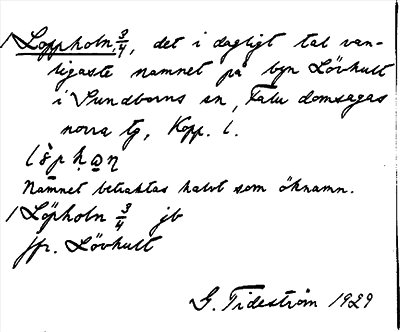 Loppholn 3/4, det i dagligt tal van-
ligaste namnet på byn Lövhult
i Sundborns sn, Falu domsagas
norra tg, Kopp. l.
Namnet betraktas halvt som öknamn.
Löpholn 3/4 jb
jfr. Lövhult
G. Tideström 1929